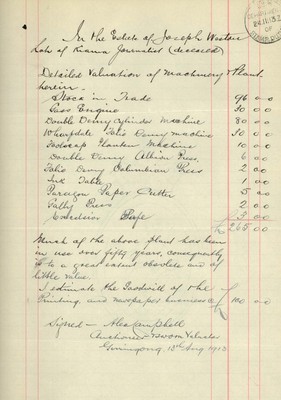 In the Estate of Joseph Weston
Late of Kiama Journalist (deceased)
Detailed Valuation of Machinery & Plant
herein.
Stock in Trade 96 0 0
Gas Engine 30 0 0
Double Demy Cylinder Machine 80 0 0
Wharfdale Folio Demy Machine 30 0 0
Foolscap Platen Machine 10 0 0
Double Demy Albion Press 6 0 0
Folio Demy Columbian Press 2 0 0
Ink Table 1 0 0
Paragon Paper Cutter 5 0 0
Galley Press 2 0 0
Excelsior Safe 3 0 0
£ 265 0 0
Much of the above Plant has been
in use over fifty years, consequently
is to a great extent obsolete and of
little value.
I estimate the Goodwill of the
Printing and newspaper business £ 100 0 0
Signed — Alex Campbell
Auctioneer & Valuator
Gerringong, 13th Aug 1913